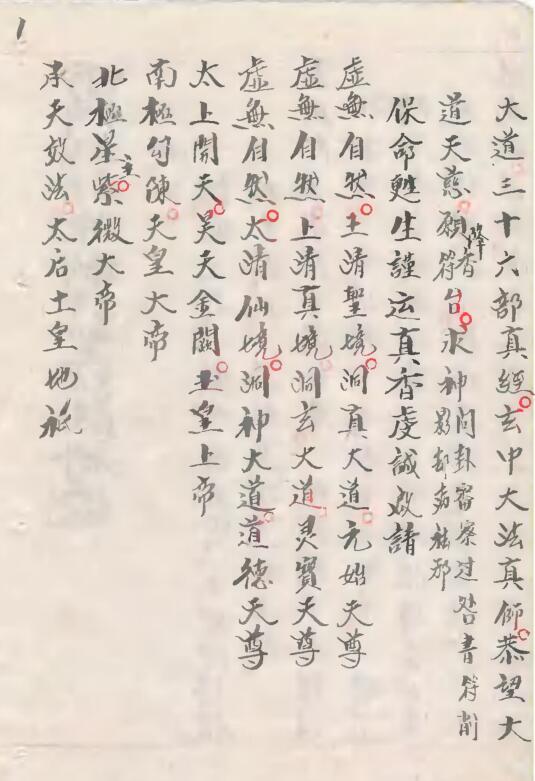 1
大道三十六部真經。玄中大法真師。恭望大
道天慈。願降香符台。水神問卦審察过咎書符削
影却病祛邪
保命甦生謹运真香虔誠啟請
虛無自然。玉清聖境。洞真大道。元始天尊
虛無自然。上清真境。洞玄大道。灵寳天尊
虛無自然。太清仙境。洞神大道。道德天尊
太上開天。昊天金闕。玉皇上帝
南極勾陳。天皇大帝
北極星主。紫微大帝
承天效法。太后土皇地祇